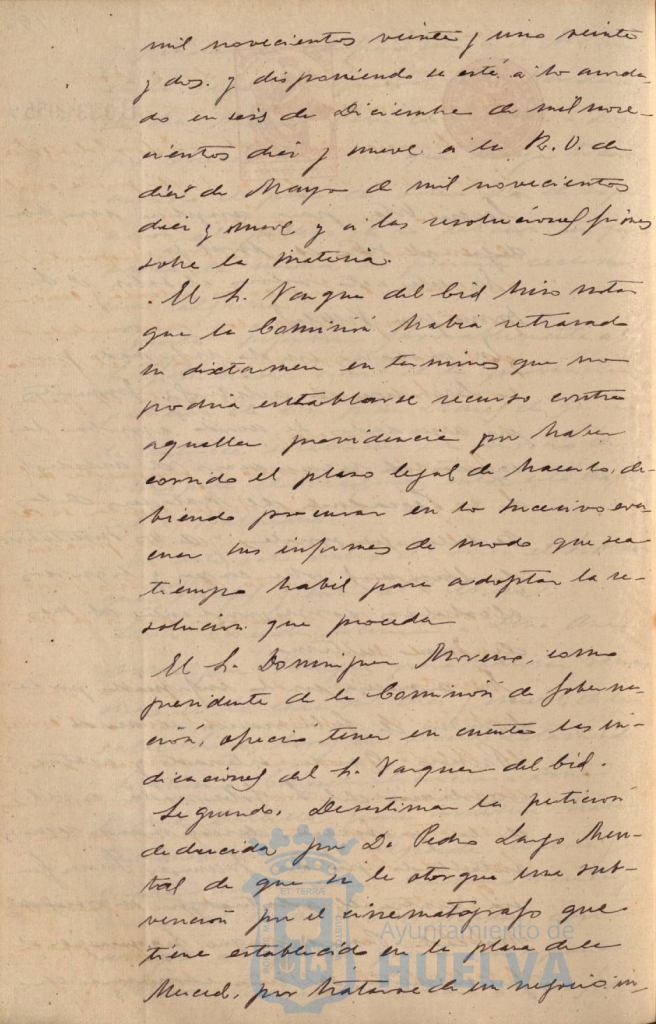 mil novecientos veinte y uno veinte
y dos. y disponiendo se esté a lo acorda-
do en seis de Diciembre de mil nove-
cientos diez y nueve a la R. O. de
diez de Mayo de mil novecientos
diez y nueve y a las resoluciones
sobre la materia.
. El Sr. Vazquez del Cid hizo notar
que la Comisión habia retrasado
su dictamen en terminos que no
podria establecerse recurso contra
aquella providencia por haber
corrido el plazo legal de hacerlo, de-
biendo procurar en lo sucesivo eva-
cuar sus informes de modo que sea
tiempo habil para adoptar la re-
solución que proceda
El Sr. Dominguez Moreno, como
presidente de la Comisión de Goberna-
ción, ofreció tener en cuenta las in-
dicaciones del Sr. Vazquez del Cid.
Segundo. Desestimar la petición
deducida por Dn. Pedro
de que se le otorgue una sub-
vención por el cinematógrafo que
tiene establecido en la plaza de la
Merced, por tratarse de un negocio in-
Ayuntamiento de
HUELVA